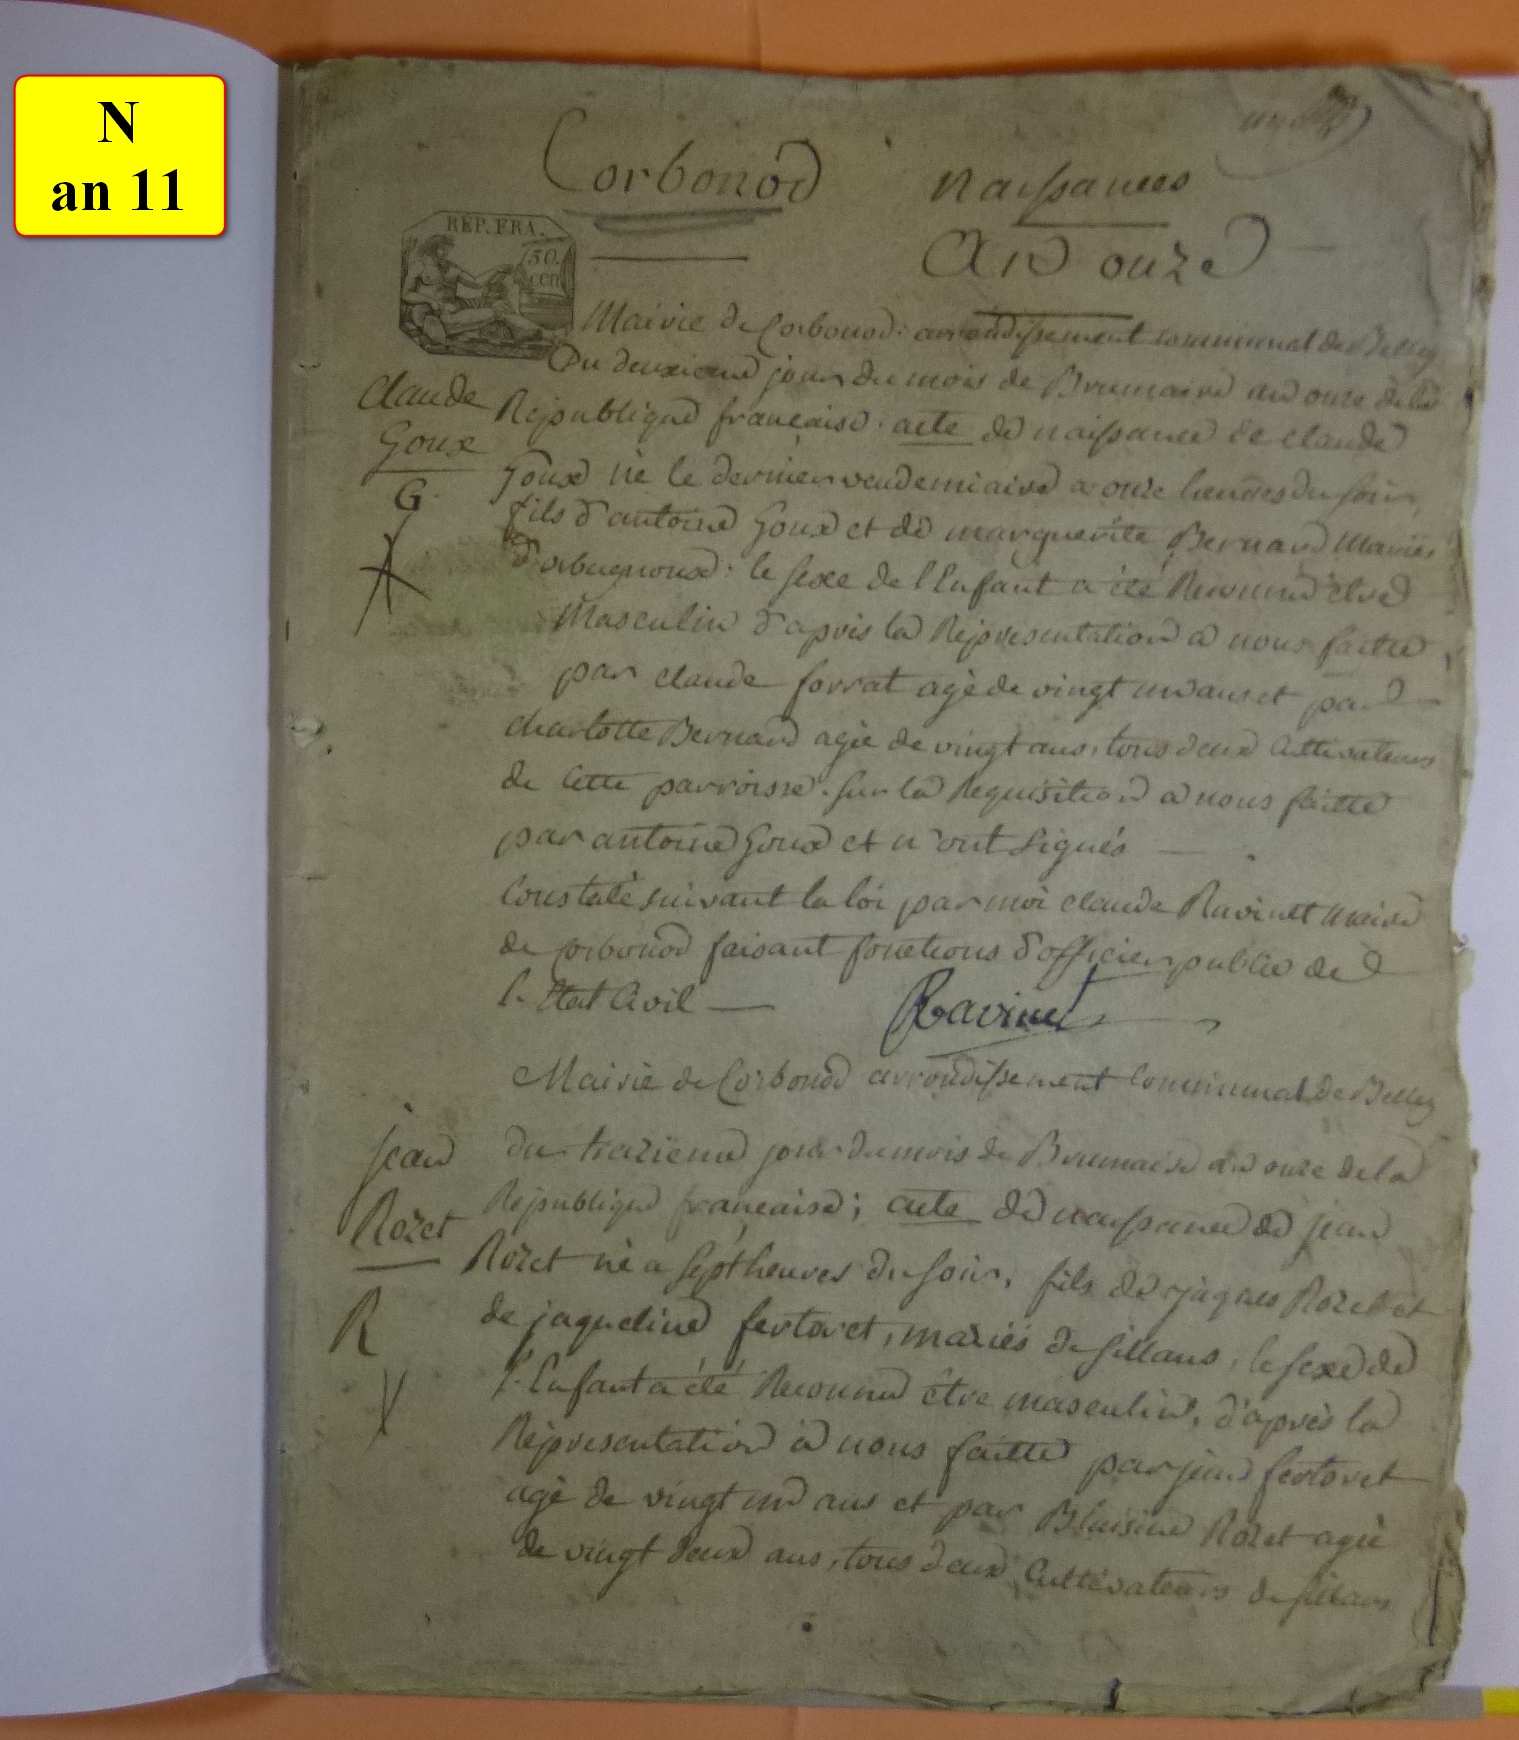 N
an 11
Corbonod
naissances
An onze
REP. FRA.
50
cen
Mairie de Corbonod. arrondissement communal de Belley
Du deuxieme jour du mois de Brumaire an onze de la
Claude
Republique française. acte de naissance de claude
Goux
Goux né le dernier vendemiaire a onze heures du soir,
G.
fils d'antoine Goux et de marguerite Bernard Mariés
d'orbagnoux: le sexe de l'Enfant a été Reconnu être
Masculin d'après la Représentation a nous faitte
par claude forrat agé de vingt un ans et par
charlotte Bernard agée de vingt ans, tous deux Cultivateurs
de Cette parroisse. sur la Requisition a nous faitte
par antoine Goux et n'ont signés
Constaté suivant la loi par moi claude Ravinet maire
de Corbonod faisant fonctions d'officier public de
l'Etat Civil
Ravinet
Mairie de Corbonod arrondissement communal de Belley
jean
du treizieme jour du mois de Brumaire an onze de la
Republique française; acte de naissance de jean
Rozet
Rozet né a sept heures du soir, fils de jaques Rozet et
R
de jaqueline fertoret, mariés de sillans, le sexe de
l'Enfant a été Reconnu être masculin, d'après la
Représentation à nous faitte par jean fertoret
agé de vingt un ans et par Blaisine Rozet agée
de vingt deux ans, tous deux Cultivateurs de sillans